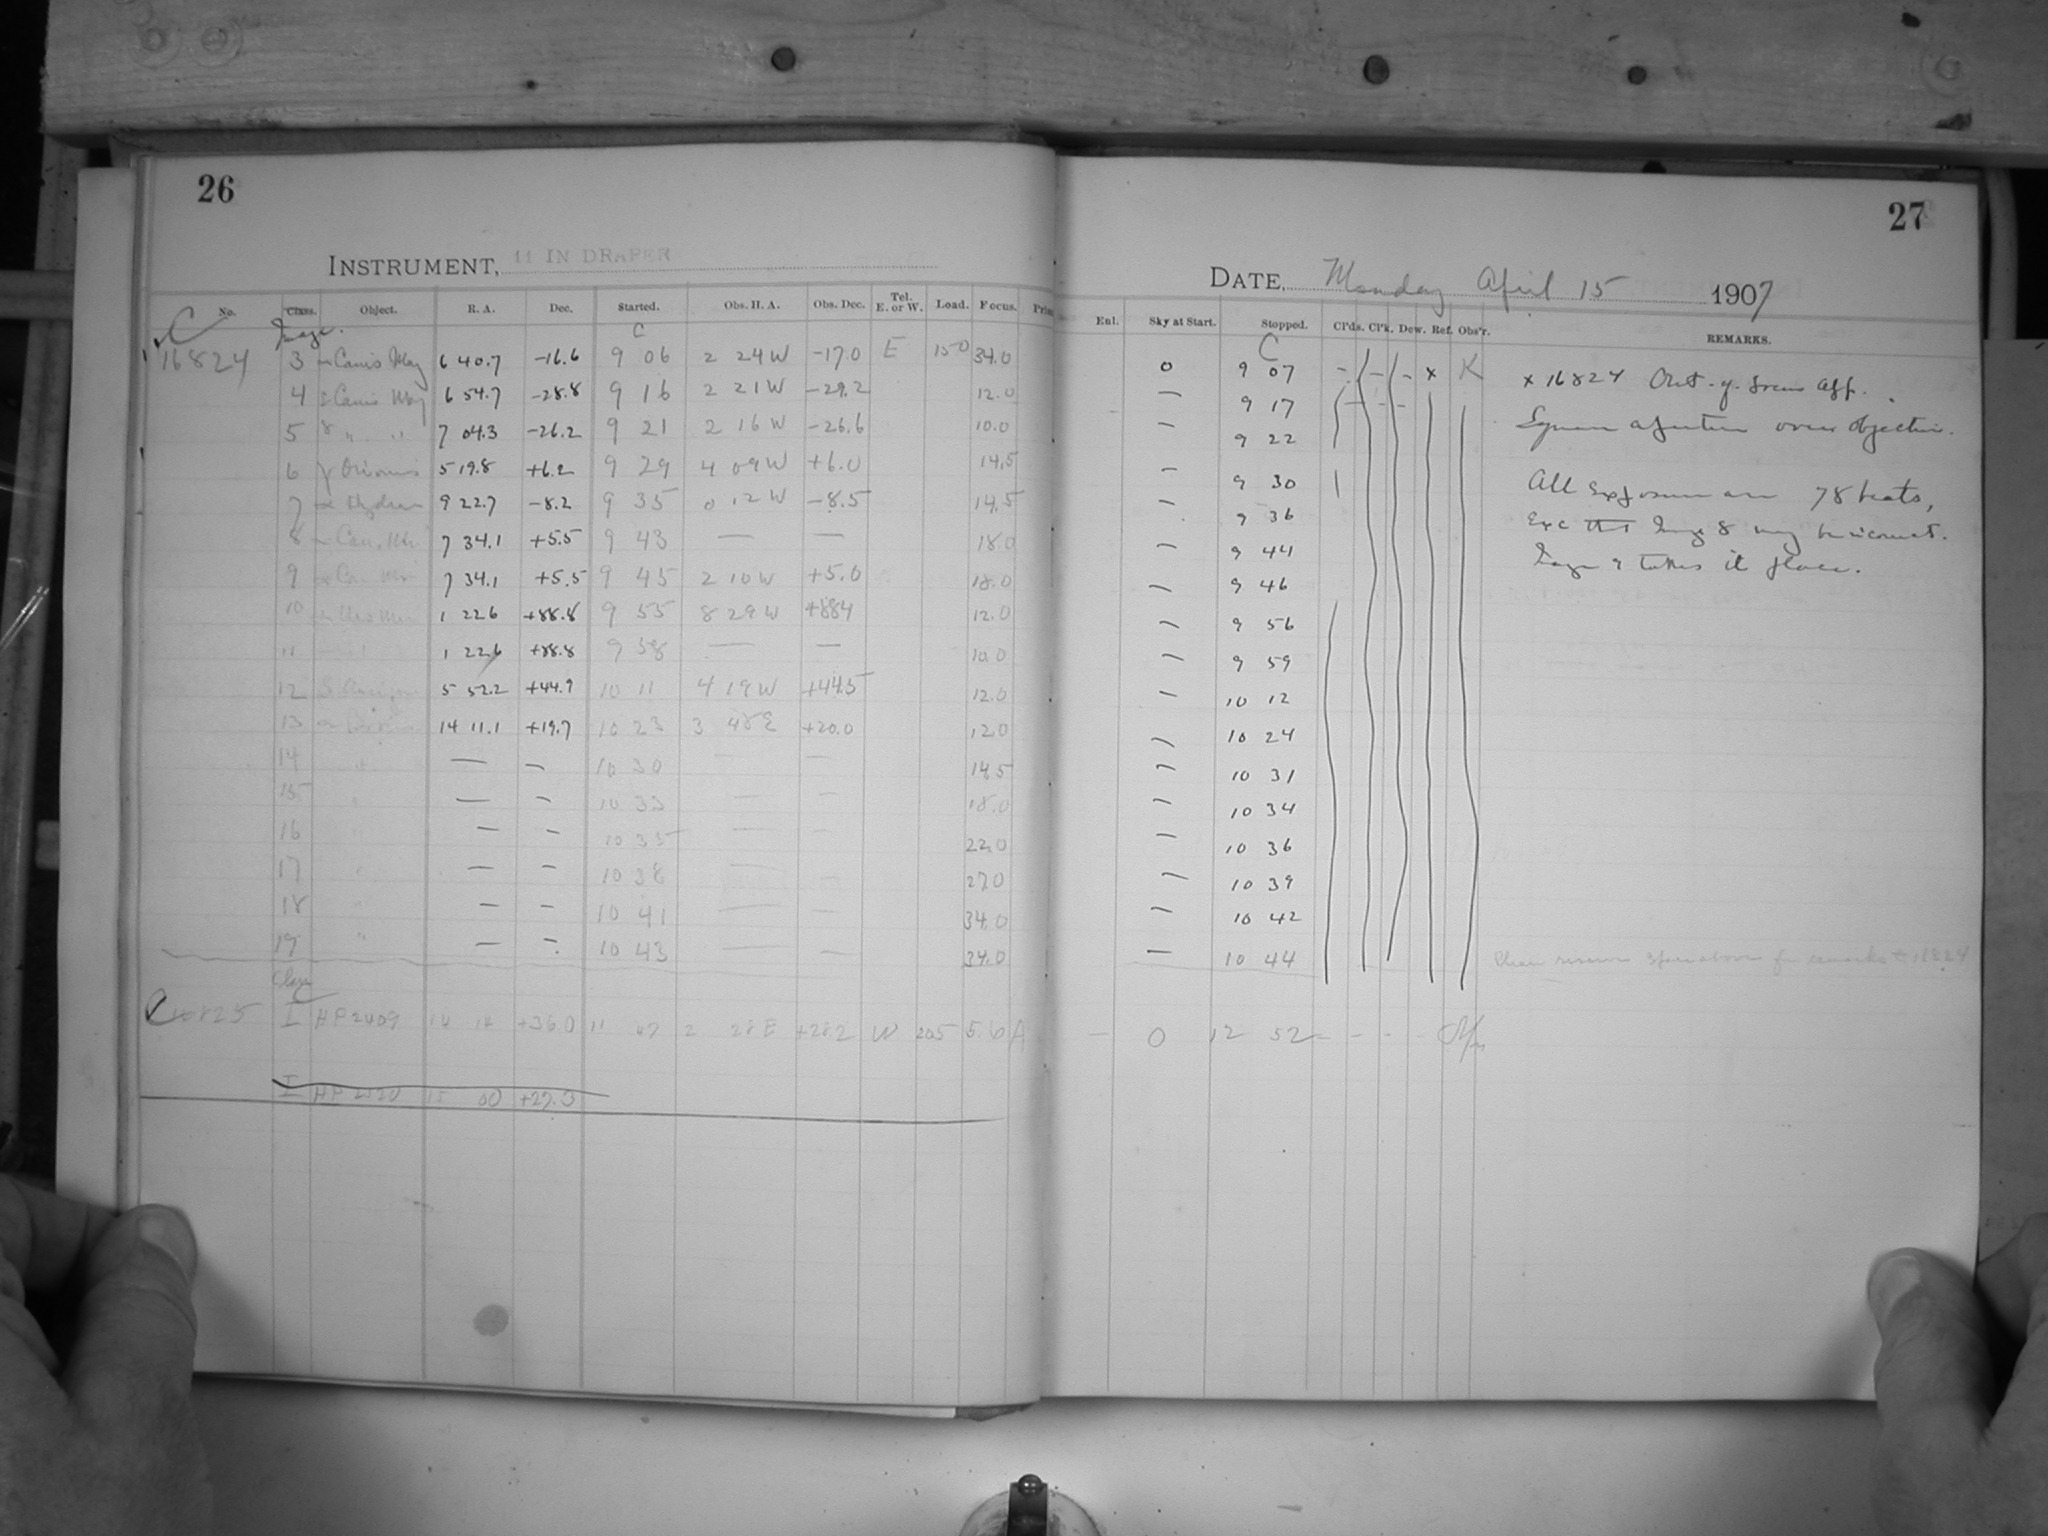 26
INSTRUMENT, 11 IN DRAPER
No. Class. Object. R. A. Dec. Started. Obs. H. A. Obs. Dec. Tel. E. or W. Load. Focus.
C C
16824 3 α Canis Maj 6 40.7 -16.6 9 06 2 24 W -17.0 E 150 34.0
4 Canis Maj 6 54.7 -28.8 9 16 2 21 W -29.2 12.0
5 " " 7 04.3 -26.2 9 21 2 16 W -26.6 10.0
6 γ Orionis 5 19.8 +6.2 9 29 4 09 W +6.0 14.5
7 α Hydrae 9 22.7 -8.2 9 35 0 12 W -8.5 14.5
8 7 34.1 +5.5 9 43 — — 18.0
9 7 34.1 +5.5 9 45 2 10 W +5.0 18.0
10 1 22.6 +88.8 9 55 8 29 W +88.4 12.0
11 1 22.6 +88.8 9 58 — — 10.0
12 5 52.2 +44.9 10 11 4 19 W +44.5 12.0
13 14 11.1 +19.7 10 23 3 48 E +20.0 12.0
14 " — — 10 30 — — 14.5
15 " — — 10 33 — — 18.0
16 " — — 10 35 — — 22.0
17 " — — 10 38 — — 27.0
18 " — — 10 41 — — 34.0
19 " — — 10 43 — — 34.0
Class
C 16825 I HP 2409 14 12 +36.0 11 47 2 28 E +28.2 W 205 5.6 A
I HP 15 00 +27.3
27
DATE, Monday April 15 1907
Enl. Sky at Start. Stopped. Cl'ds. Cl'k. Dew. Ref. Obs'r. REMARKS.
C
0 9 07 - - - x K x 16824 Out-of-focus App.
— 9 17 - - - Square aperture over objective.
— 9 22
— 9 30 All exposures are 78 beats,
— 9 36 Exc that Image 8 may be incorrect.
— 9 44 Image 9 takes its place.
— 9 46
— 9 56
— 9 59
— 10 12
— 10 24
— 10 31
— 10 34
— 10 36
— 10 39
— 10 42
— 10 44 Please reserve space above for remarks to 16824
— 0 12 52 - - - -